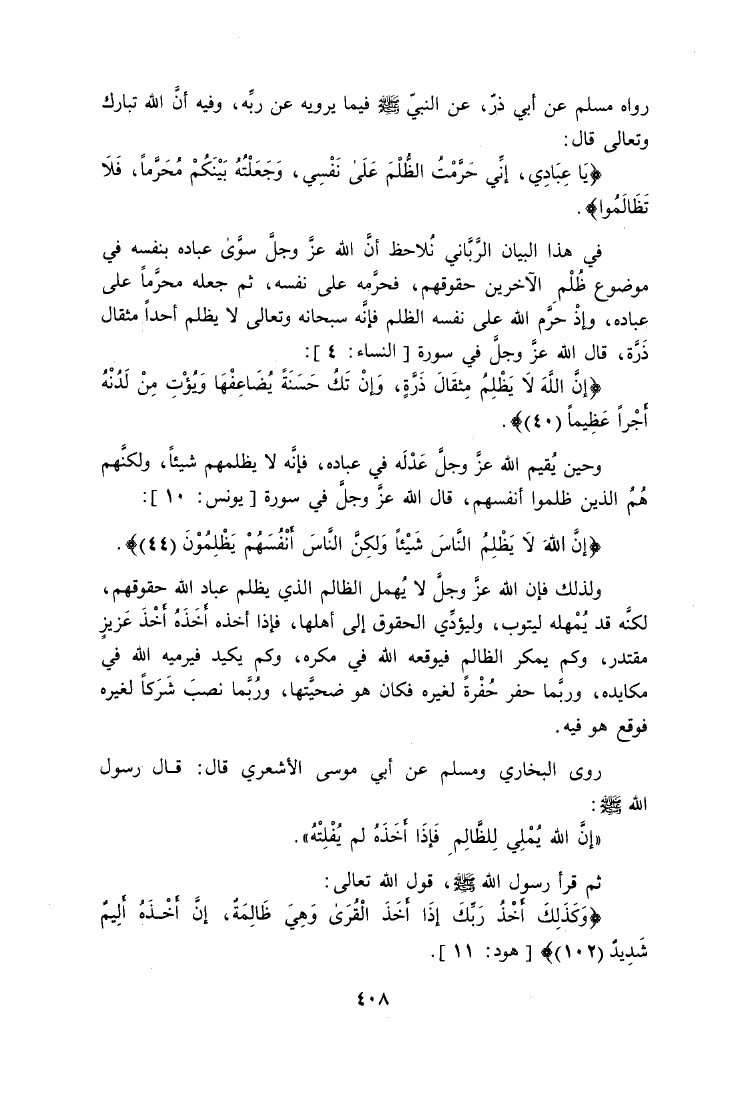 رواه مسلم عن أبي ذرّ، عن النبيّ ﷺ فيما يرويه عن ربِّه، وفيه أنَّ الله تبارك
وتعالى قال:
﴿يَا عِبَادِي، إِنِّي حَرَّمْتُ الظُّلْمَ عَلَىٰ نَفْسِي، وَجَعَلْتُهُ بَيْنَكُمْ مُحَرَّماً، فَلَا
تَظَالَمُوا﴾.
في هذا البيان الرَّبَّاني نُلاحظ أنَّ الله عزَّ وجلَّ سوَّىٰ عباده بنفسه في
موضوع ظُلْمِ الآخرين حقوقهم، فحرَّمه على نفسه، ثم جعله محرَّماً على
عباده، وإذْ حرَّم الله على نفسه الظلم فإنَّه سبحانه وتعالى لا يظلم أحداً مثقال
ذَرَّة، قال الله عزَّ وجلَّ في سورة [النساء: ٤]:
﴿إِنَّ اللَّهَ لَا يَظْلِمُ مِثقَالَ ذَرَّةٍ، وَإِنْ تَكُ حَسَنَةً يُضَاعِفْهَا وَيُؤْتِ مِنْ لَدُنْهُ
أَجْراً عَظِيماً (٤٠)﴾.
وحين يُقيم الله عزَّ وجلَّ عَدْلَه في عباده، فإنَّه لا يظلمهم شيئاً، ولكنَّهم
هُمُ الذين ظلموا أنفسهم، قال الله عزَّ وجلَّ في سورة [يونس: ١٠]:
﴿إِنَّ اللهَ لَا يَظْلِمُ النَّاسَ شَيْئاً وَلكِنَّ النَّاسَ أَنْفُسَهُمْ يَظْلِمُوْنَ (٤٤)﴾.
ولذلك فإن الله عزَّ وجلَّ لا يُهمل الظالم الذي يظلم عباد الله حقوقهم،
لكنَّه قد يُمْهله ليتوب، وليؤدِّي الحقوق إلى أهلها، فإذا أخذه أَخَذَهُ أَخْذَ عَزِيزٍ
مقتدر، وكم يمكر الظالم فيوقعه الله في مكره، وكم يكيد فيرميه الله في
مكايده، وربَّما حفر حُفْرةً لغيره فكان هو ضحيَّتها، ورُبَّما نصبَ شَرَكاً لغيره
فوقع هو فيه.
روى البخاري ومسلم عن أبي موسى الأشعري قال: قال رسول
الله ﷺ:
«إنَّ الله يُمْلِي لِلظَّالِمِ فَإذَا أَخَذَهُ لم يُفْلِتْهُ».
ثم قرأ رسول الله ﷺ، قول الله تعالى:
﴿وَكَذَلِكَ أَخْذُ رَبِّكَ إِذَا أَخَذَ الْقُرَىٰ وَهِيَ ظَالِمَةٌ، إِنَّ أَخْذَهُ أَلِيمٌ
شَدِيدٌ (١٠٢)﴾ [هود: ١١].
٤٠٨